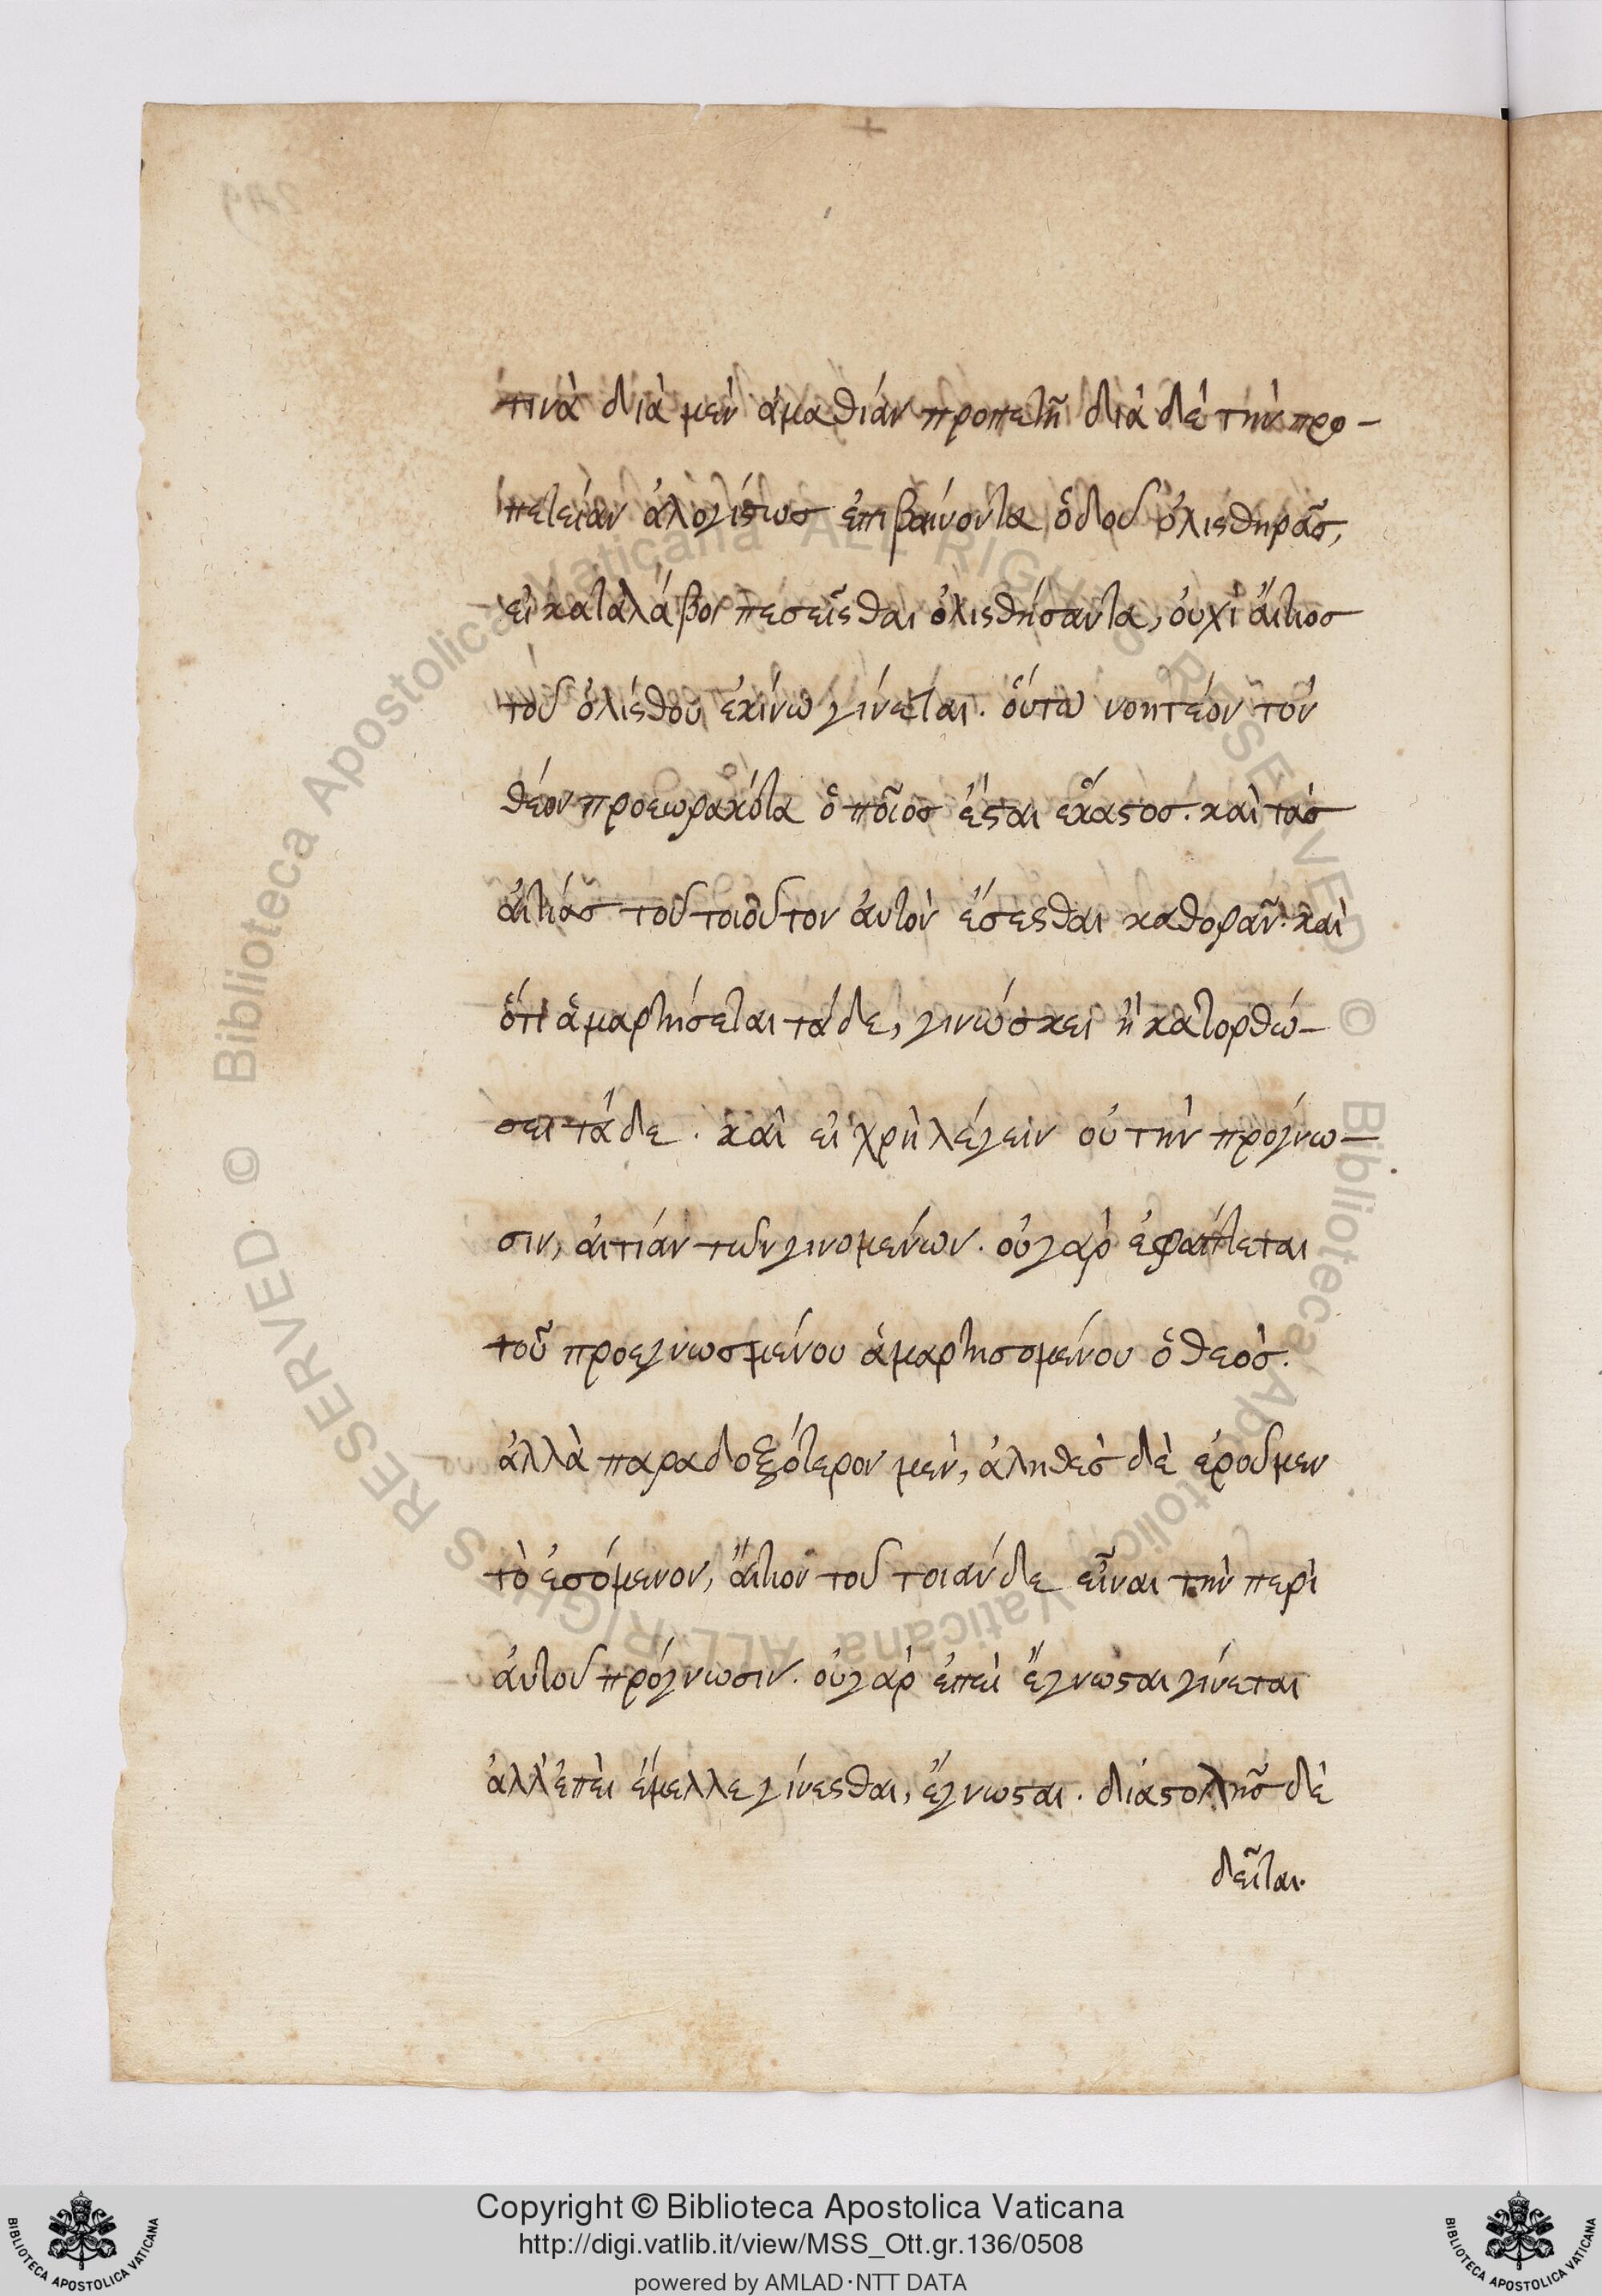 τινὰ διὰ μὲν ἀμαθίαν προπετῆ διὰ δὲ τὴν προ-
πετείαν ἀλογίστως ἐπιβαίνοντα ὁδοῦ ὀλισθηρᾶς,
εἰ καταλάβοι πεσεῖσθαι ὀλισθήσαντα, οὐχὶ ἄιτιος
τοῦ ὀλίσθου ἐκίνω γίνεται. ὅυτω νοητέον τὸν
θεὸν προεωρακότα ὁποῖος ἔσται ἕκαστος. καὶ τὰς
ἀιτίας τοῦ τοιοῦτον ἀυτὸν ἔσεσθαι καθορᾶν. καὶ
ὅτι ἁμαρτήσεται τάδε, γινώσκει ἢ κατορθώ-
σει τάδε. καὶ εἰ χρὴ λέγειν οὐ τὴν πρόγνω-
σιν, ἀιτίαν τῶν γινομένων. οὐ γὰρ ἐφάπτεται
τοῦ προεγνωσμένου ἁμαρτησομένου ὁ θεὸς.
ἀλλὰ παραδοξότερον μὲν, ἀληθὲς δὲ ἐροῦμεν
τὸ ἐσόμενον, ἄιτιον τοῦ τοιάνδε εἶναι τὴν περὶ
ἀυτοῦ πρόγνωσιν. οὐ γὰρ ἐπεὶ ἔγνωσται γίνεται
ἀλλ' ἐπεὶ ἔμελλε γίνεσθαι, ἔγνωσται. διαστολῆς δὲ
δεῖται.
Copyright © Biblioteca Apostolica Vaticana
http://digi.vatlib.it/view/MSS_Ott.gr.136/0508
powered by AMLAD·NTT DATA